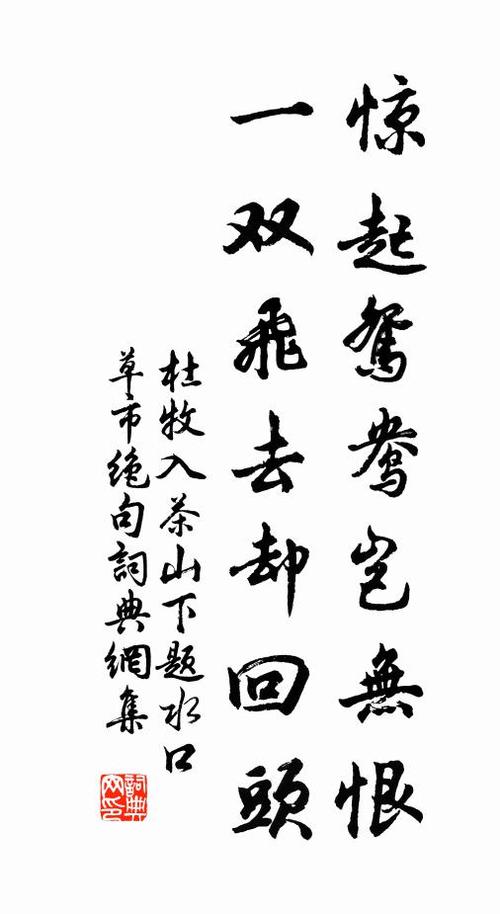 惊起鸳鸯岂無恨
一双飛去却回頭
杜牧入茶山下题水口
草市绝句詞典網集
詞典
网印